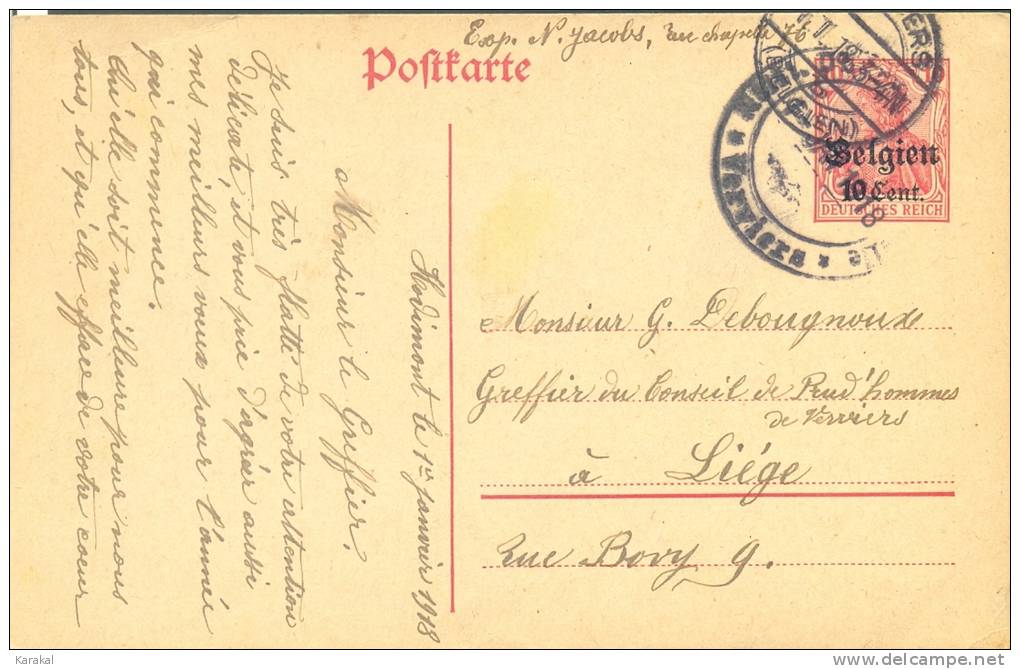 Exp. N. Jacobs, Rue chapelle 76
Postkarte
Belgien
10 Cent.
DEUTSCHES REICH
Monsieur G. Debougnoux
Greffier du Conseil de Prud'hommes
de Verviers
à Liége
Rue Bovy 9.
Hodimont le 1er janvier 1918
Monsieur le Greffier.
Je suis très flatté de votre attention
délicate, et vous prie d'agréer aussi
mes meilleurs vœux pour l'année
qui commence.
Qu'elle soit meilleure pour nous
tous, et qu'elle efface de votre coeur
Karakal
delcampe.net